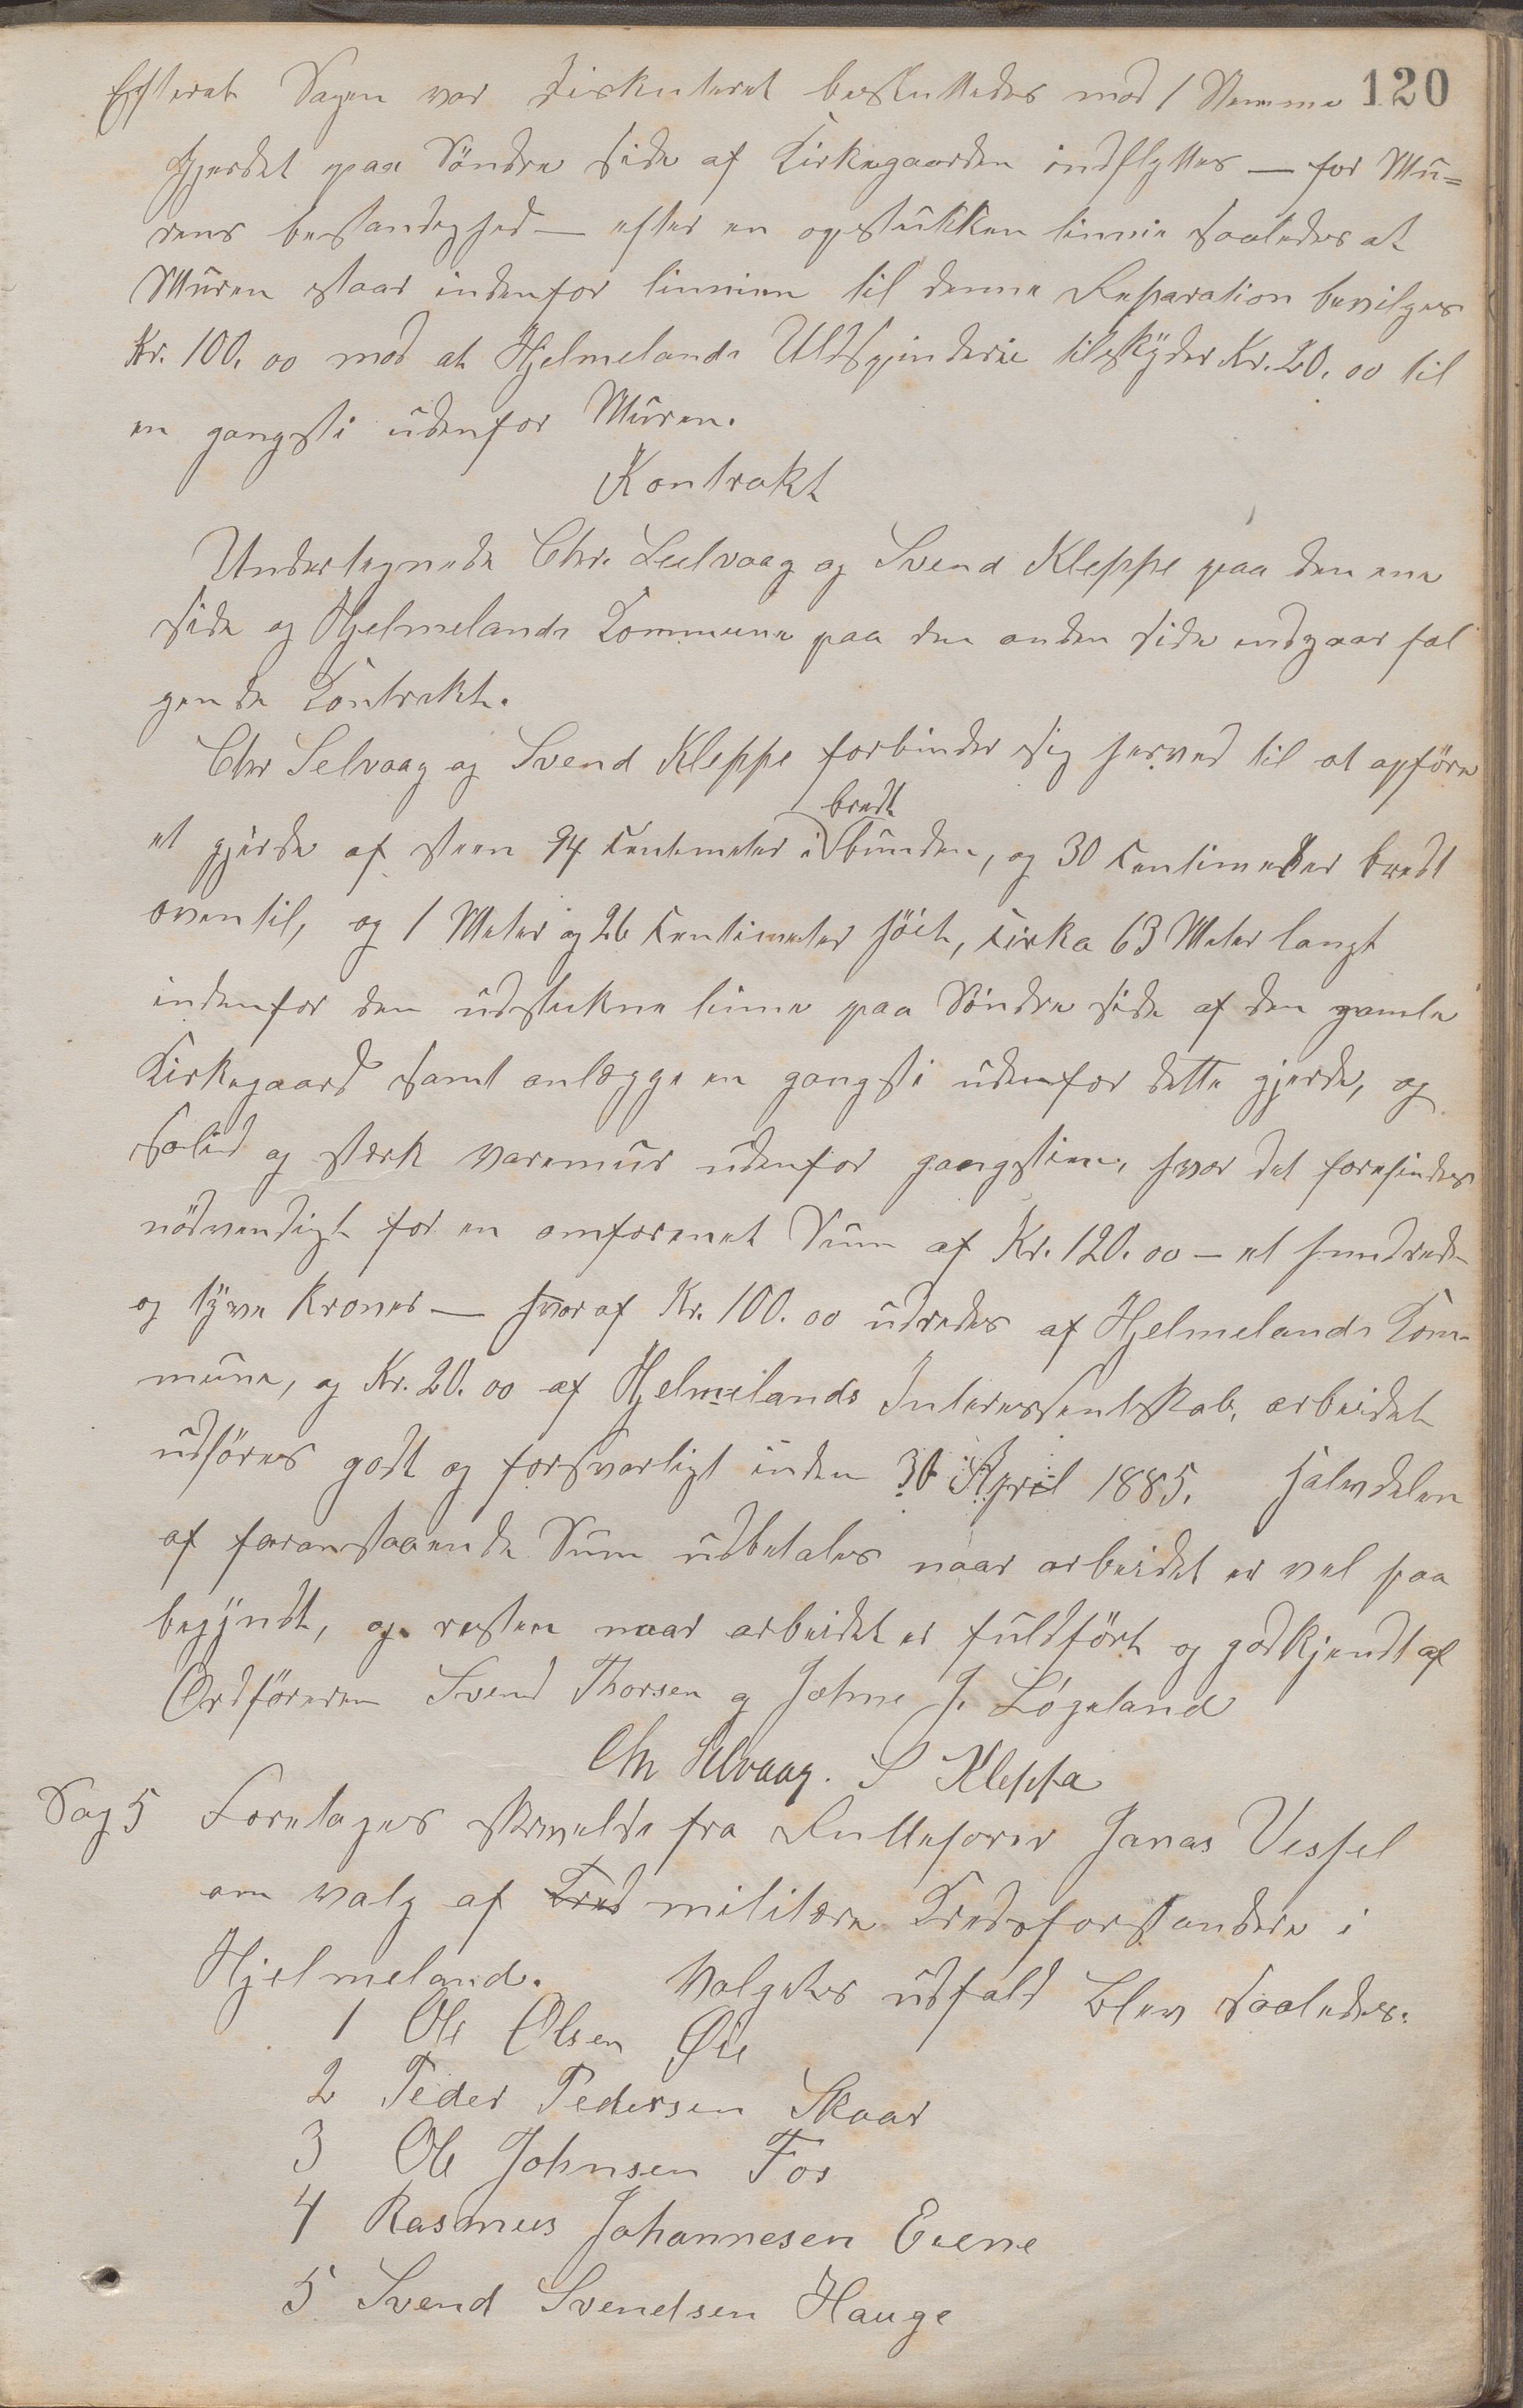 120
Efterat Sagen var diskuteret besluttedes mod 1 Stemme
Gjerdet paa Söndre Side af Kirkegaarden indflyttes — for Mu=
rens bestandighed — efter en opstukken linnie saaledes at
Muren staar indenfor linnien til denne Reparation bevilges
Kr. 100. 00 mod at Hjelmelands Uldspinderie tilskyder Kr. 20. 00 til
en gangsti udenfor Muren.
Kontrakt
Undertegnede Chr. Selvaag og Svend Kleppe paa den ene
side og Hjelmelands Kommune paa den anden side indgaar føl
gende Kontrakt.
Chr Selvaag og Svend Kleppe forbinder sig herved til at opföre
bredt
et gjerde af steen 94 Centimeter i bunden, og 30 Centimeter bredt
oventil, og 1 Meter og 26 Centimeter höit, cirka 63 Meter langt
indenfor den udstukne linie paa Söndre side af den gamle
Kirkegaard samt anlægge en gangsti udenfor dette gjerde, og
solid og stærk varemur udenfor gangstien, hvor det forefindes
nödvendigt for en omforenet Sum af Kr. 120. 00 — et hundrede
og tyve Kroner — hvoraf Kr. 100. 00 udredes af Hjelmelands Kom-
mune, og Kr. 20. 00 af Hjelmelands Interessentskab, arbeidet
udföres godt og forsvarligt inden 30 April 1885. halvdelen
af foranstaaende Sum udbetales naar arbeidet er vel paa
begyndt, og resten naar arbeidet er fuldfört og godkjendt af
Ordföreren Svend Thorsen og Johne J. Løgeland
Chr Selvaag. S Kleppa
Sag 5 Foretages skrivelse fra Rulleforer Jonas Vessel
om valg af Kred militære Kredsforstandere i
Hjelmeland. Valgets udfald blev saaledes.
1 Ole Olsen Øie
2 Peder Pedersen Skaar
3 Ole Johnsen Fos
4 Rasmus Johannesen Eiene
5 Svend Svendsen Hauge